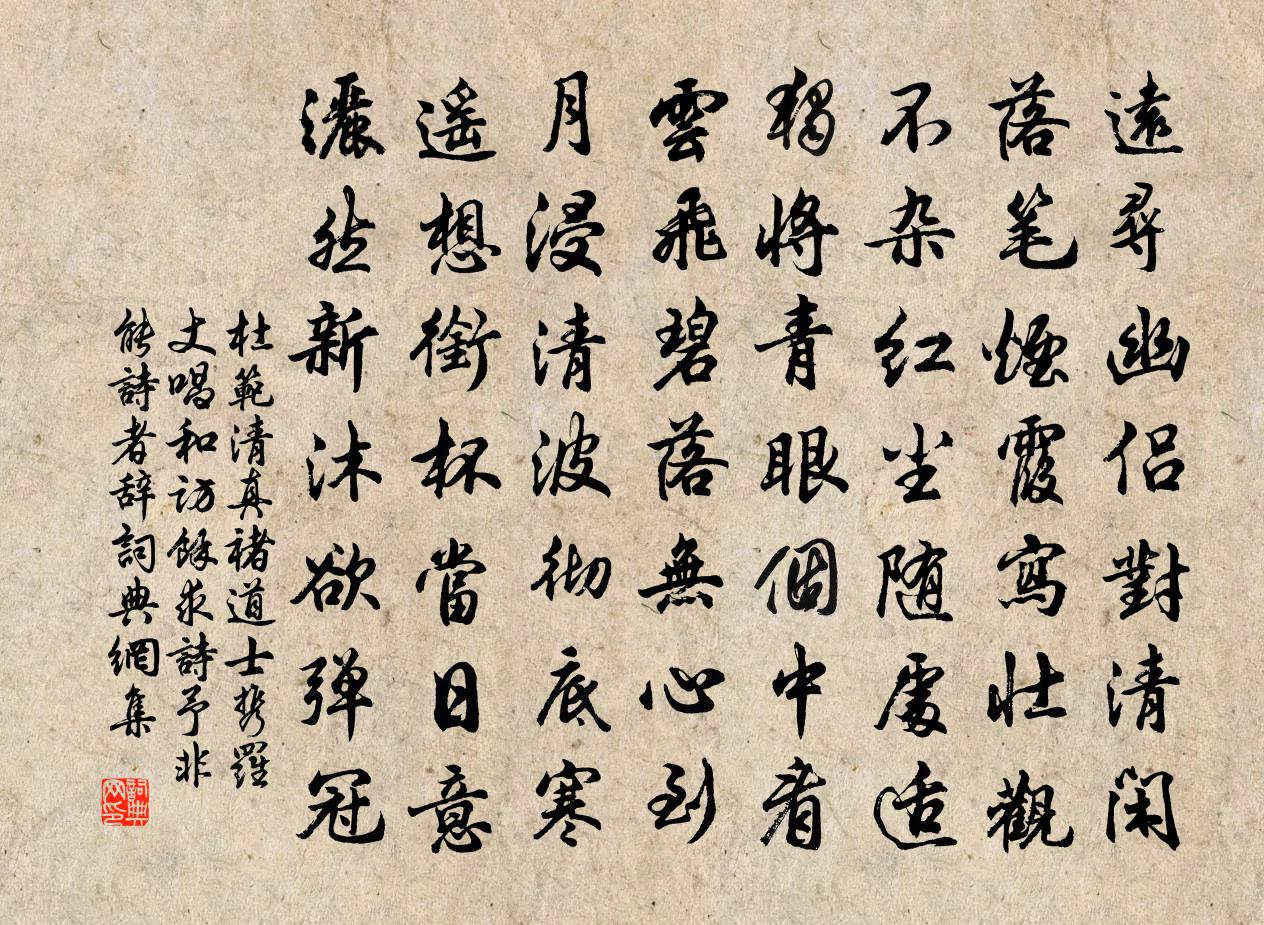 遠尋幽侣對清閑
落笔煙霞寫壯觀
不杂紅尘随處适
獨將青眼個中看
雲飛碧落無心到
月浸清波彻底寒
遥想銜杯當日意
灑然新沐欲弹冠
杜範清真褚道士携羅
丈唱和访餘求詩予非
能詩者辞詞典網集
詞典网印